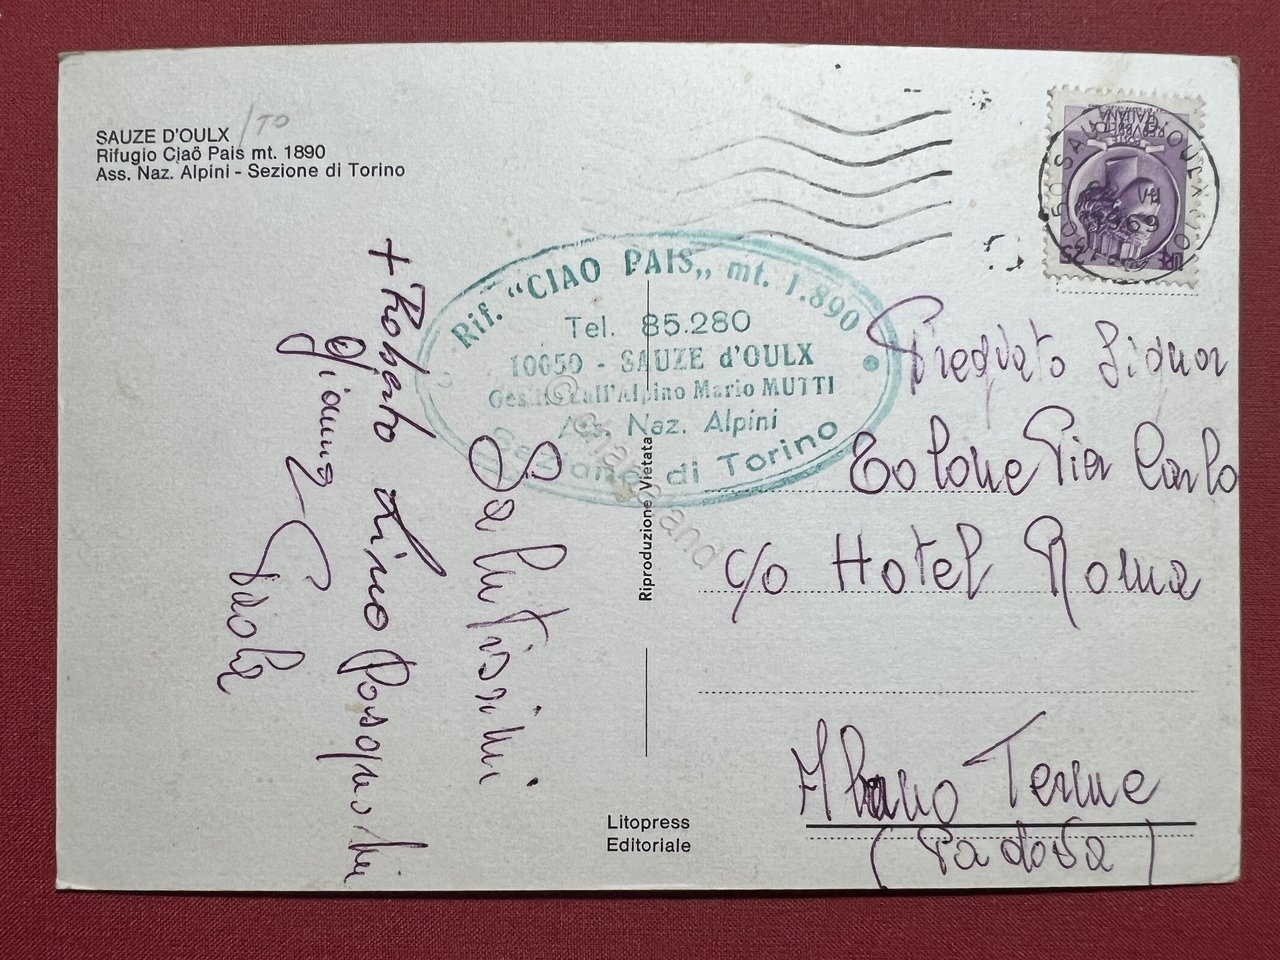 SAUZE D'OULX /TO
Rifugio Ciaö Pais mt. 1890
Ass. Naz. Alpini - Sezione di Torino
Rif. "CIAO PAIS,, mt. 1.890
Tel. 85.280
10050 - SAUZE d'OULX
Gestito dall'Alpino Mario MUTTI
Ass. Naz. Alpini
Sezione di Torino
Salutissimi
+ Roberto Lino Pasqualini
Gianna
Paola
Riproduzione Vietata
Litopress
Editoriale
REPUBBLICA
ITALIANA
LIRE
10050 SAUZE D'OULX (TO)
1969
Pregiato Signor
Colone Pier Carlo
c/o Hotel Roma
Abano Terme
(Padova)